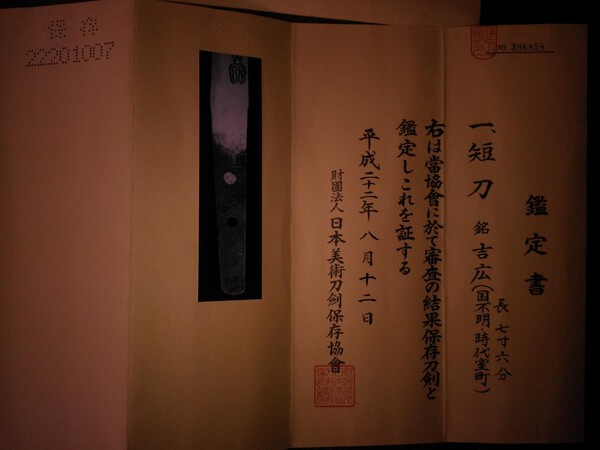 鑑定書
№ 386858
一、短刀 銘 吉広(国不明・時代室町)
長 七寸六分
右は當協會に於て審査の結果保存刀剣と
鑑定しこれを証する
平成二十二年八月十二日
財團法人 日本美術刀劍保存協會
保存
22201007